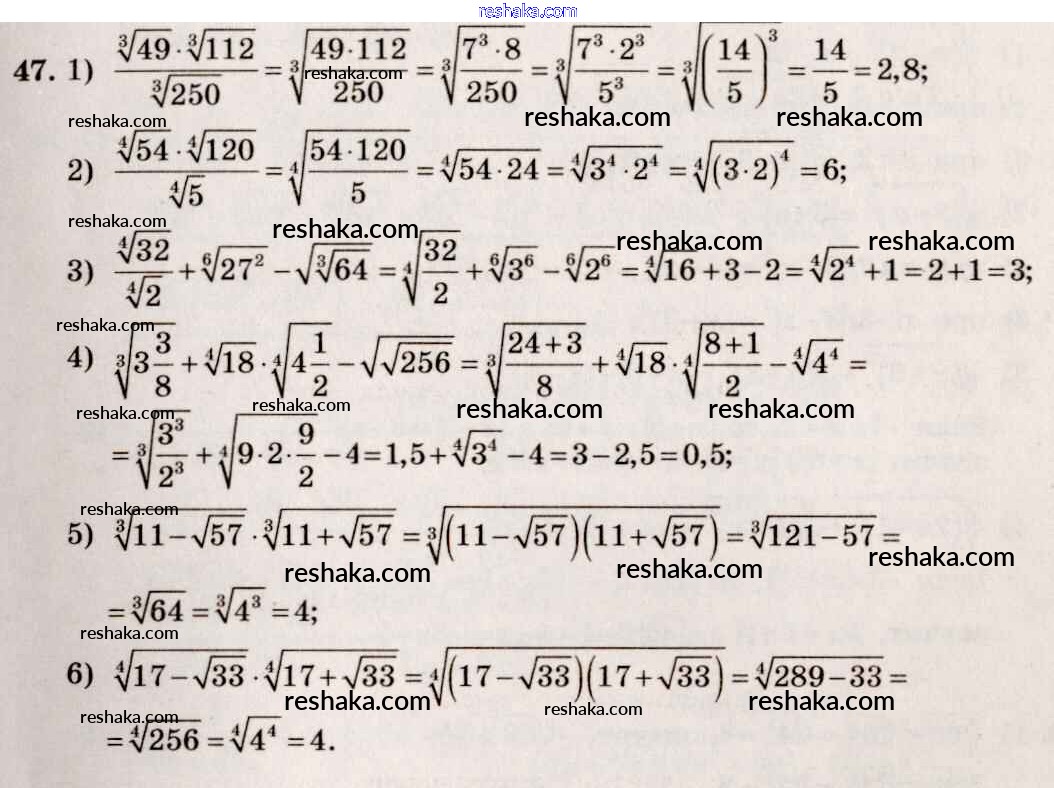 reshaka.com
47. 1) \frac{\sqrt[3]{49} \cdot \sqrt[3]{112}}{\sqrt[3]{250}} = \sqrt[3]{\frac{49 \cdot 112}{250}} = \sqrt[3]{\frac{7^3 \cdot 8}{250}} = \sqrt[3]{\frac{7^3 \cdot 2^3}{5^3}} = \sqrt[3]{\left(\frac{14}{5}\right)^3} = \frac{14}{5} = 2,8;
reshaka.com
reshaka.com reshaka.com reshaka.com
2) \frac{\sqrt[4]{54} \cdot \sqrt[4]{120}}{\sqrt[4]{5}} = \sqrt[4]{\frac{54 \cdot 120}{5}} = \sqrt[4]{54 \cdot 24} = \sqrt[4]{3^4 \cdot 2^4} = \sqrt[4]{(3 \cdot 2)^4} = 6;
reshaka.com reshaka.com reshaka.com reshaka.com
3) \frac{\sqrt[4]{32}}{\sqrt[4]{2}} + \sqrt[6]{27^2} - \sqrt{\sqrt[3]{64}} = \sqrt[4]{\frac{32}{2}} + \sqrt[6]{3^6} - \sqrt[6]{2^6} = \sqrt[4]{16} + 3 - 2 = \sqrt[4]{2^4} + 1 = 2 + 1 = 3;
reshaka.com
4) \sqrt[3]{3\frac{3}{8}} + \sqrt[4]{18} \cdot \sqrt[4]{4\frac{1}{2}} - \sqrt{\sqrt{256}} = \sqrt[3]{\frac{24+3}{8}} + \sqrt[4]{18} \cdot \sqrt[4]{\frac{8+1}{2}} - \sqrt[4]{4^4} =
reshaka.com reshaka.com reshaka.com reshaka.com
= \sqrt[3]{\frac{3^3}{2^3}} + \sqrt[4]{9 \cdot 2 \cdot \frac{9}{2}} - 4 = 1,5 + \sqrt[4]{3^4} - 4 = 3 - 2,5 = 0,5;
5) \sqrt[3]{11 - \sqrt{57}} \cdot \sqrt[3]{11 + \sqrt{57}} = \sqrt[3]{(11 - \sqrt{57})(11 + \sqrt{57})} = \sqrt[3]{121 - 57} =
reshaka.com reshaka.com reshaka.com
= \sqrt[3]{64} = \sqrt[3]{4^3} = 4;
reshaka.com
6) \sqrt[4]{17 - \sqrt{33}} \cdot \sqrt[4]{17 + \sqrt{33}} = \sqrt[4]{(17 - \sqrt{33})(17 + \sqrt{33})} = \sqrt[4]{289 - 33} =
reshaka.com reshaka.com reshaka.com reshaka.com
= \sqrt[4]{256} = \sqrt[4]{4^4} = 4.